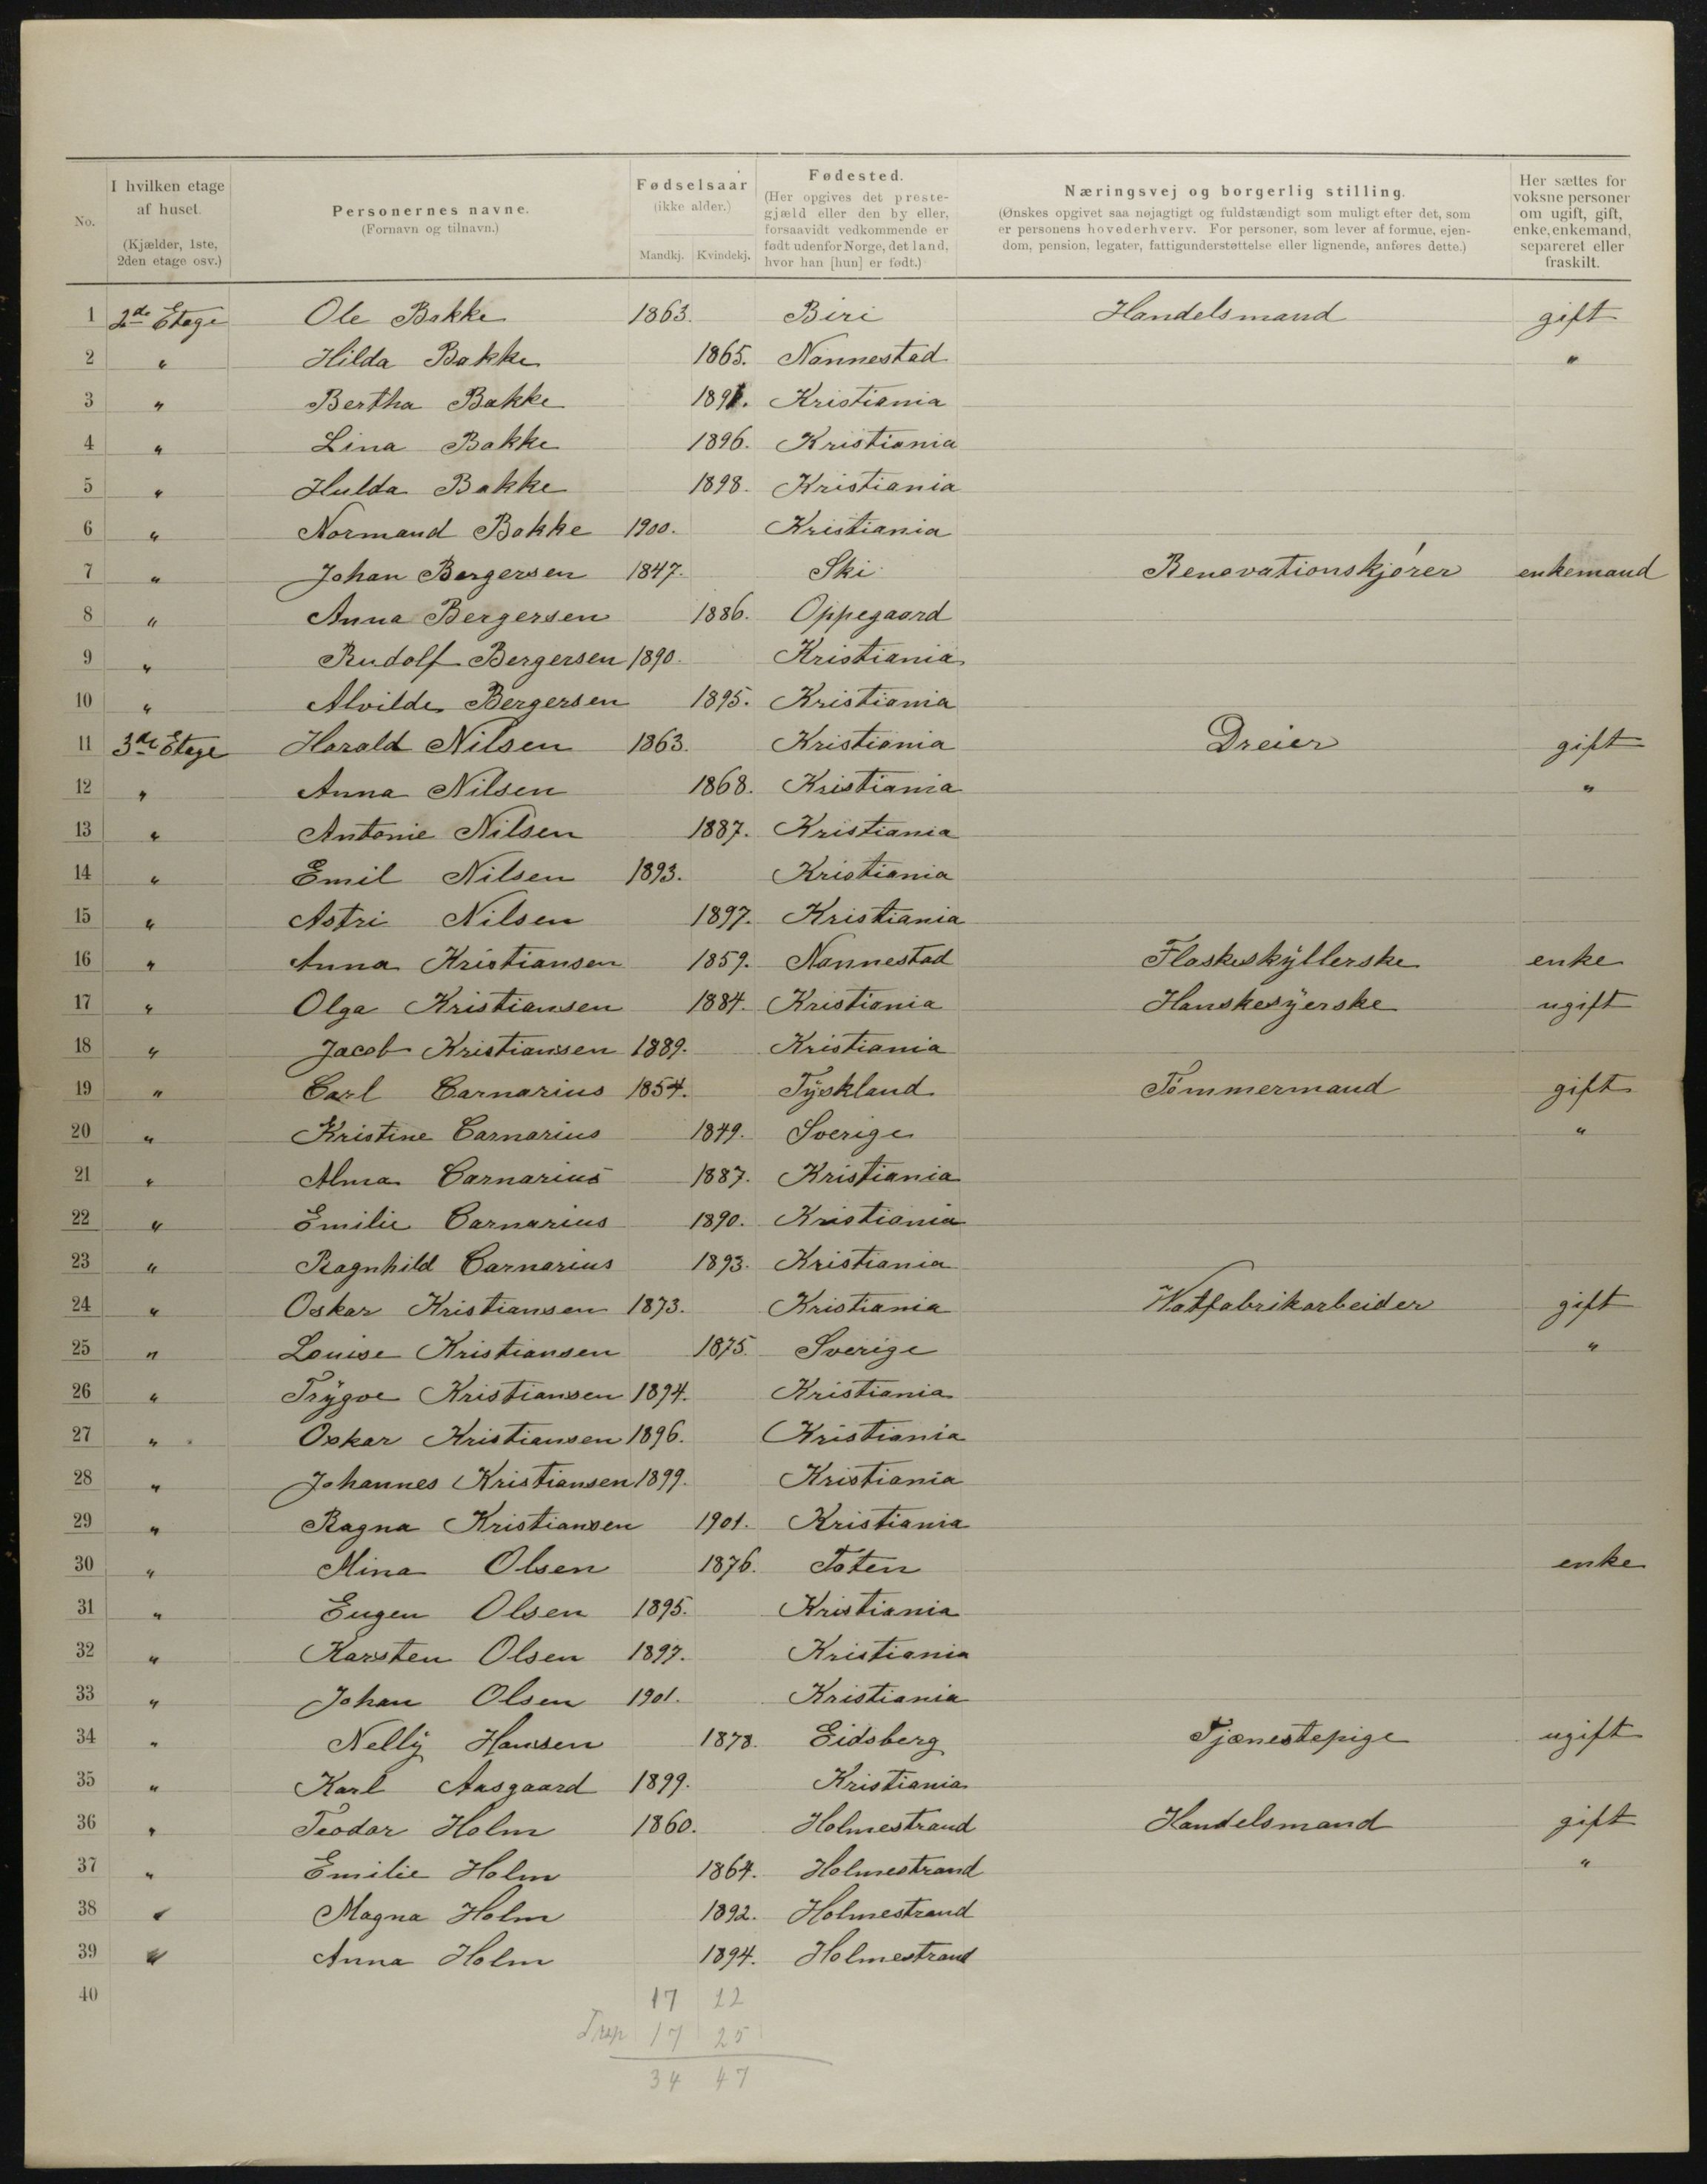 No.
I hvilken etage af huset. (Kjælder, 1ste, 2den etage osv.)
Personernes navne. (Fornavn og tilnavn.)
Fødselsaar (ikke alder.)
Mandkj. Kvindekj.
Fødested. (Her opgives det prestegjæld eller den by eller, forsaavidt vedkommende er født udenfor Norge, det land, hvor han [hun] er født.)
Næringsvej og borgerlig stilling. (Ønskes opgivet saa nøjagtigt og fuldstændigt som muligt efter det, som er personens hovederhverv. For personer, som lever af formue, ejendom, pension, legater, fattigunderstøttelse eller lignende, anføres dette.)
Her sættes for voksne personer om ugift, gift, enke, enkemand, separeret eller fraskilt.
1 2de Etage Ole Bakke 1863. Biri Handelsmand gift
2 " Hilda Bakke 1865. Nannestad "
3 " Bertha Bakke 1891. Kristiania
4 " Lina Bakke 1896. Kristiania
5 " Hulda Bakke 1898. Kristiania
6 " Normand Bakke 1900. Kristiania
7 " Johan Bergersen 1847. Ski Renovationskjører enkemand
8 " Anna Bergersen 1886. Oppegaard
9 " Rudolf Bergersen 1890. Kristiania
10 " Alvilde Bergersen 1895. Kristiania
11 3de Etage Harald Nilsen 1863. Kristiania Dreier gift
12 " Anna Nilsen 1868. Kristiania "
13 " Antonie Nilsen 1887. Kristiania
14 " Emil Nilsen 1893. Kristiania
15 " Astri Nilsen 1897. Kristiania
16 " Anna Kristiansen 1859. Nannestad Flaskeskyllerske enke
17 " Olga Kristiansen 1884. Kristiania Hanskesyerske ugift
18 " Jacob Kristiansen 1889. Kristiania
19 " Carl Carnarius 1854. Tyskland Tømmermand gift
20 " Kristine Carnarius 1849. Sverige "
21 " Alma Carnarius 1887. Kristiania
22 " Emilie Carnarius 1890. Kristiania
23 " Ragnhild Carnarius 1893. Kristiania
24 " Oskar Kristiansen 1873. Kristiania Watfabrikarbeider gift
25 " Louise Kristiansen 1875. Sverige "
26 " Trygve Kristiansen 1894. Kristiania
27 " Oskar Kristiansen 1896. Kristiania
28 " Johannes Kristiansen 1899. Kristiania
29 " Ragna Kristiansen 1901. Kristiania
30 " Mina Olsen 1876. Toten enke
31 " Eugen Olsen 1895. Kristiania
32 " Karsten Olsen 1897. Kristiania
33 " Johan Olsen 1901. Kristiania
34 " Nelly Hansen 1878. Eidsberg Tjenestepige ugift
35 " Karl Aasgaard 1899. Kristiania
36 " Teodor Holm 1860. Holmestrand Handelsmand gift
37 " Emilie Holm 1864. Holmestrand "
38 " Magna Holm 1892. Holmestrand
39 " Anna Holm 1894. Holmestrand
40
17 22
17 25
34 47